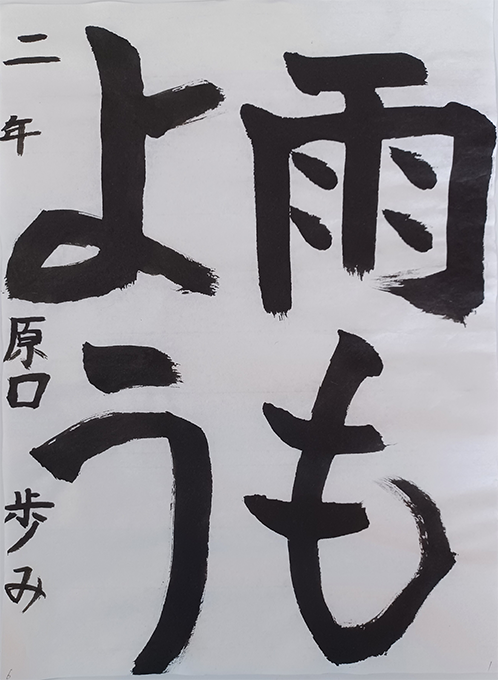 雨も
よう
二年 原口 歩み